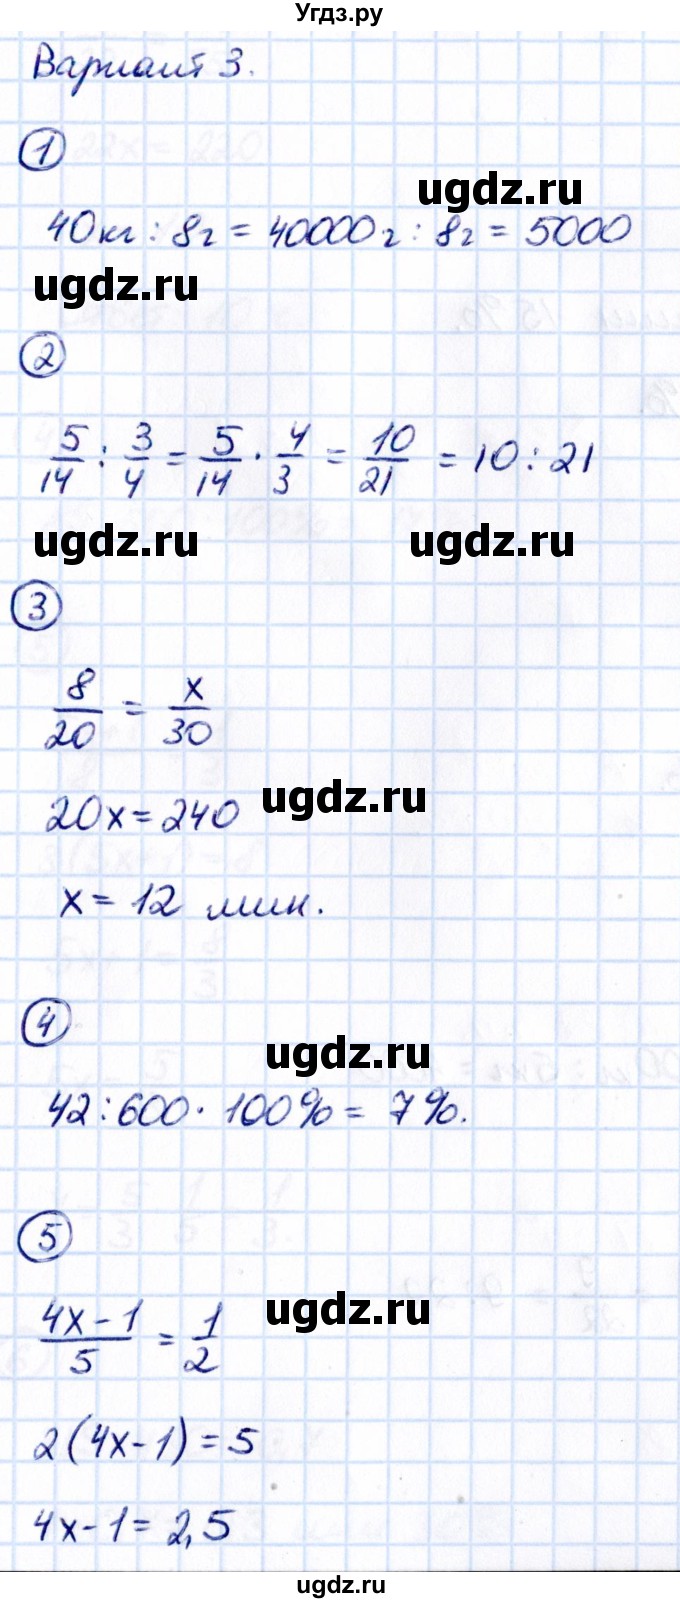 Угдз.ру
Вариант 3.
1
ugdz.ru
40кг : 8г = 40000г : 8г = 5000
ugdz.ru
2
5/14 : 3/4 = 5/14 · 4/3 = 10/21 = 10 : 21
ugdz.ru ugdz.ru
3
8/20 = x/30
20x = 240
ugdz.ru
x = 12 мин.
4
ugdz.ru
42 : 600 · 100% = 7%.
5
(4x - 1)/5 = 1/2
ugdz.ru
2(4x - 1) = 5
4x - 1 = 2,5
ugdz.ru